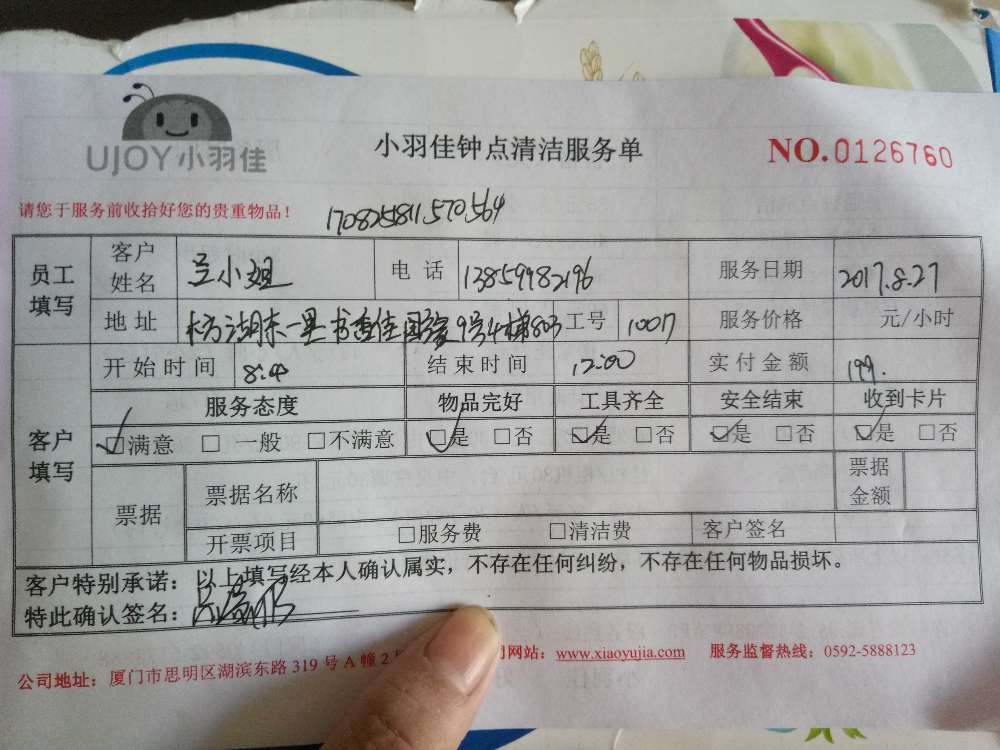 UJOY小羽佳
小羽佳钟点清洁服务单
NO.0126760
请您于服务前收拾好您的贵重物品！
170825811570564
员工填写 客户姓名 吕小姐 电话 13859982196 服务日期 2017.8.27
地址 湖东一里书香佳园 9号4梯803 工号 1007 服务价格 元/小时
客户填写 开始时间 8:40 结束时间 12:00 实付金额 199.
服务态度 物品完好 工具齐全 安全结束 收到卡片
☑满意 □一般 □不满意 ☑是 □否 ☑是 □否 ☑是 □否 ☑是 □否
票据 票据名称 票据金额
开票项目 □服务费 □清洁费 客户签名
客户特别承诺：以上填写经本人确认属实，不存在任何纠纷，不存在任何物品损坏。
特此确认签名：
公司地址：厦门市思明区湖滨东路 319 号 A 幢 2 网站：www.xiaoyujia.com 服务监督热线：0592-5888123